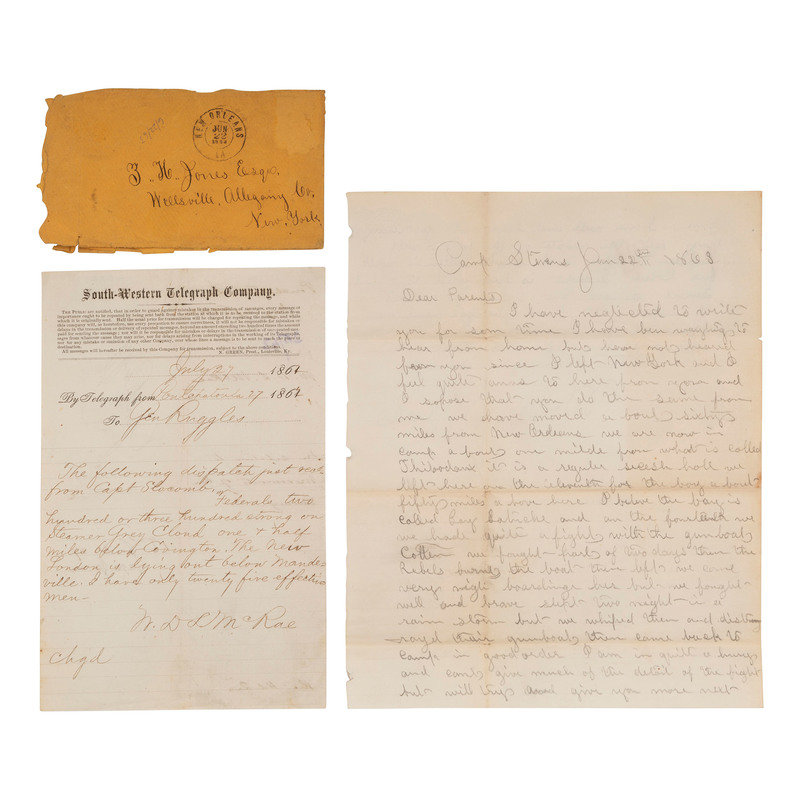 NEW ORLEANS
JUN
LA
Z. H. Jones Esqr.
Wellsville, Allegany Co.
New, York
South-Western Telegraph Company.
THE PUBLIC are notified, that in order to guard against mistakes in the transmission of messages, every message of
importance ought to be repeated by being sent back from the station at which it is to be received to the station from
which it is originally sent. Half the usual price for transmission will be charged for repeating the message, and while
this company will, as heretofore, use every precaution to ensure correctness, it will not be responsible for mistakes or
delays in the transmission or delivery of repeated messages, beyond an amount exceeding two hundred times the amount
paid for sending the message; nor will it be responsible for mistakes or delays in the transmission of unrepeated messages
from whatever cause they may arise, nor for delays arising from interruptions in the working of its Telegraph,
nor for any mistake or omission of any other Company, over whose lines a message is to be sent to reach the place of
destination.
All messages will hereafter be received by this Company for transmission, subject to the above conditions.
N. GREEN, Prest., Louisville, Ky.
July 27 1861
By Telegraph from 27 1861
To Gen Ruggles
The following dispatch just recd
from Capt Slocomb
Federals two
hundred or three hundred strong on
Steamer Grey Cloud one & half
miles below Covington. The New
London is lying out below Mande
ville. I have only twenty five effective
men-
W. D. L. McRae
chgd
Camp Stevens Jan 22nd 1863
Dear Parents
I have neglected to write
you for som time I have ben to
hear from home but have not heard
from you since I left New York and I
feel quite anns to here from you and
I sopose that you do the same from
me we have moved a bout sixty
miles from New Orleans we are now in
camp a bout one milde from what is called
Thibodaux it is a regular secesh hole we
left here on the eleventh for the bay a bout
fifty miles a bove here I beleve the bay is
called bay and on the fourtenth we
we had quite a fight with the gunboat
Cotton we fought part of two days then the
Rebels burnt the boat then left we came
very nigh boarding her but we fought
well and brave slept two night in a
rain storm but we whiped them and distroy
royd thair gunboat then came back to
camp in good order I am in quite a hurry
and cant give much of the detail of the fight
but will try and give you more next